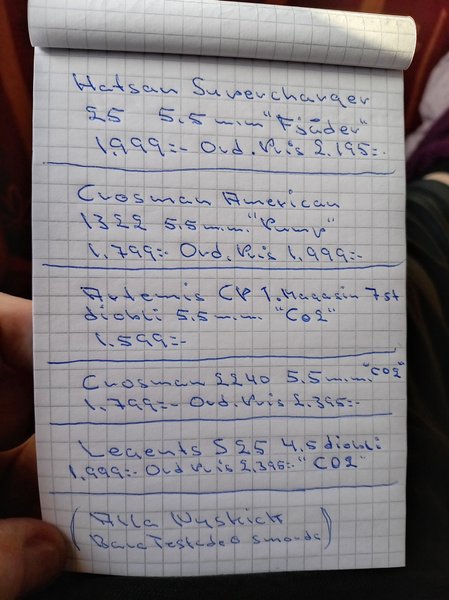 Hatsan Supercharger
25 5.5 m.m "Fjäder"
1.999:- Ord. Pris 2.195:-
Crosman American
1322 5.5 m.m. "Pump"
1.799:- Ord. Pris 1.999:-
Artemis CP 1. Magasin 7st
diobli 5.5 m.m. "Co2"
1.599:-
Crosman 2240 5.5 m.m. "CO2"
1.799:- Ord. Pris 2.395:-
Legents S25 4.5 diobli
1.999:- Ord Pris 2.395:- "CO2"
(Alla Nyskick
Bara Testade & smorda)